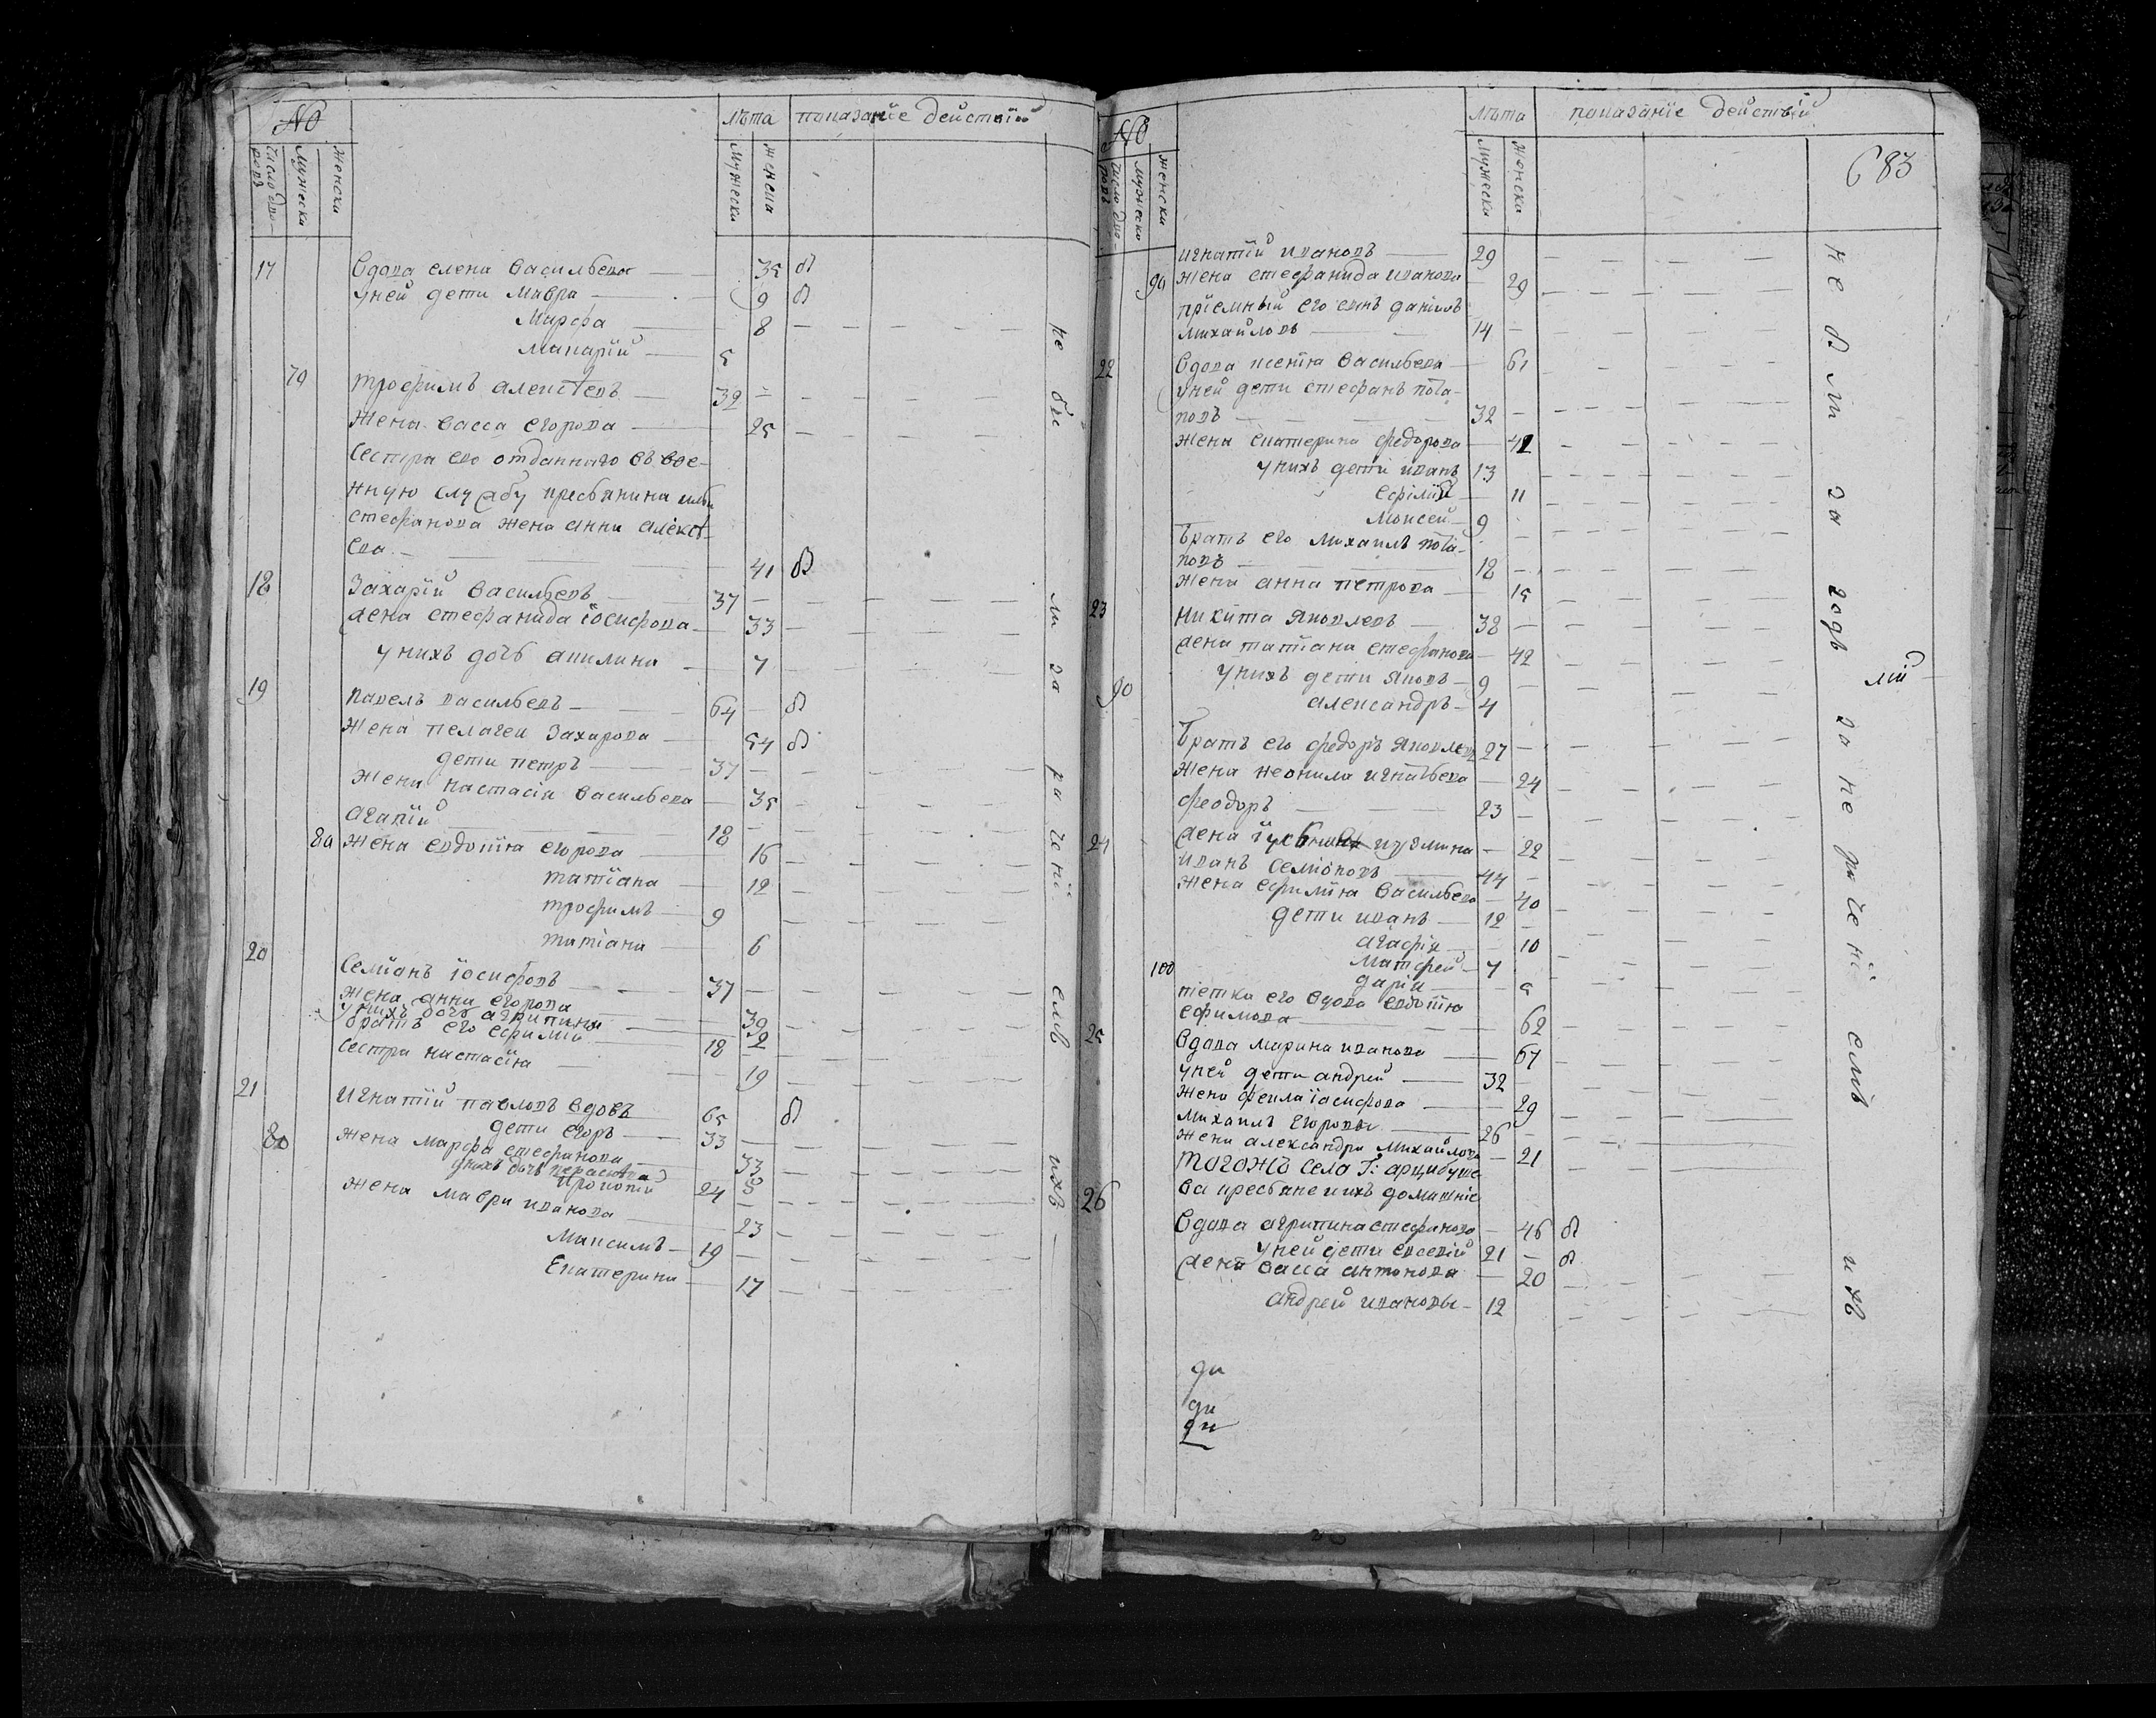 № лѣта показанїе действїй
число дво-
ровъ
мужески
женски
мужески
женски
17 вдова елена васильева — 35 в
у ней дети мавра — 9 в
марфа — 8
макарїй — 5
79 трофимъ алексѣевъ — 32
жена васса егорова — 25
сестра его отданнаго въ вое-
нную службу кресьянина
стефанова жена анна алексѣ-
ева — 41 в
18 захарїй васильевъ — 37
жена стефанида їосифова — 33
у нихъ дочь акилина — 7
19 павелъ васильевъ — 64 в
жена пелагея захарова — 54 в
дети петръ — 37
жена настасїя васильева — 35
агапїй — 18
80 жена евдокїя егорова — 16
татїана — 12
трофимъ — 9
татїана — 6
20 семїонъ їосифовъ — 37
жена анна егорова — 39
у нихъ дочь агрипина — 2
братъ его ефимїй — 18
сестра настасїя — 19
21 игнатїй павловъ вдовъ 65 в
дети егоръ — 33
80 жена марфа стефанова 33
у нихъ дочь 5
прокопїй 24
жена мавра иванова — 23
максимъ — 19
екатерина — 17
не бы ли за ра чени емъ ихъ
№ лѣта показанїе действїй
число дво-
ровъ
мужески
женски
мужески
женски
683
игнатїй ивановъ — 29
90 жена стефанида иванова 29
прїемный его сынъ данїилъ
михайловъ — 14
22 вдова ксенїя васильева — 61
у ней дети стефанъ пота-
повъ — 32
жена екатерина федорова — 42
у нихъ дети иванъ 13
11
моисей — 9
братъ его михаилъ пота-
повъ — 18
жена анна петрова — 15
23 никита яковлевъ — 38
жена татїана стефанова — 42
у нихъ дети яковъ — 9
90 александръ — 4
братъ его федоръ яковлевъ 27
жена неонила игнатьева — 24
феодоръ — 23
жена кузмина — 22
24 иванъ семїоновъ — 44
жена ефимїя васильева — 40
дети иванъ — 12
агафїя — 10
100 матфей — 7
дарїя — 5
тетка его вдова евдокїя
ефимова — 62
25 вдова марина иванова — 67
у ней дети андрей — 32
жена фекла їосифова — 29
михаилъ егоровъ — 26
жена александра михайлова — 21
тогожъ села г: арцибуше-
ва кресьяне и ихъ домашнїе
26 вдова агрипина стефанова — 46 в
у ней дети евсевїй 21 — в
жена васса антонова — 20
андрей ивановы — 12
не бы ли за годъ за не ра чени емъ ихъ